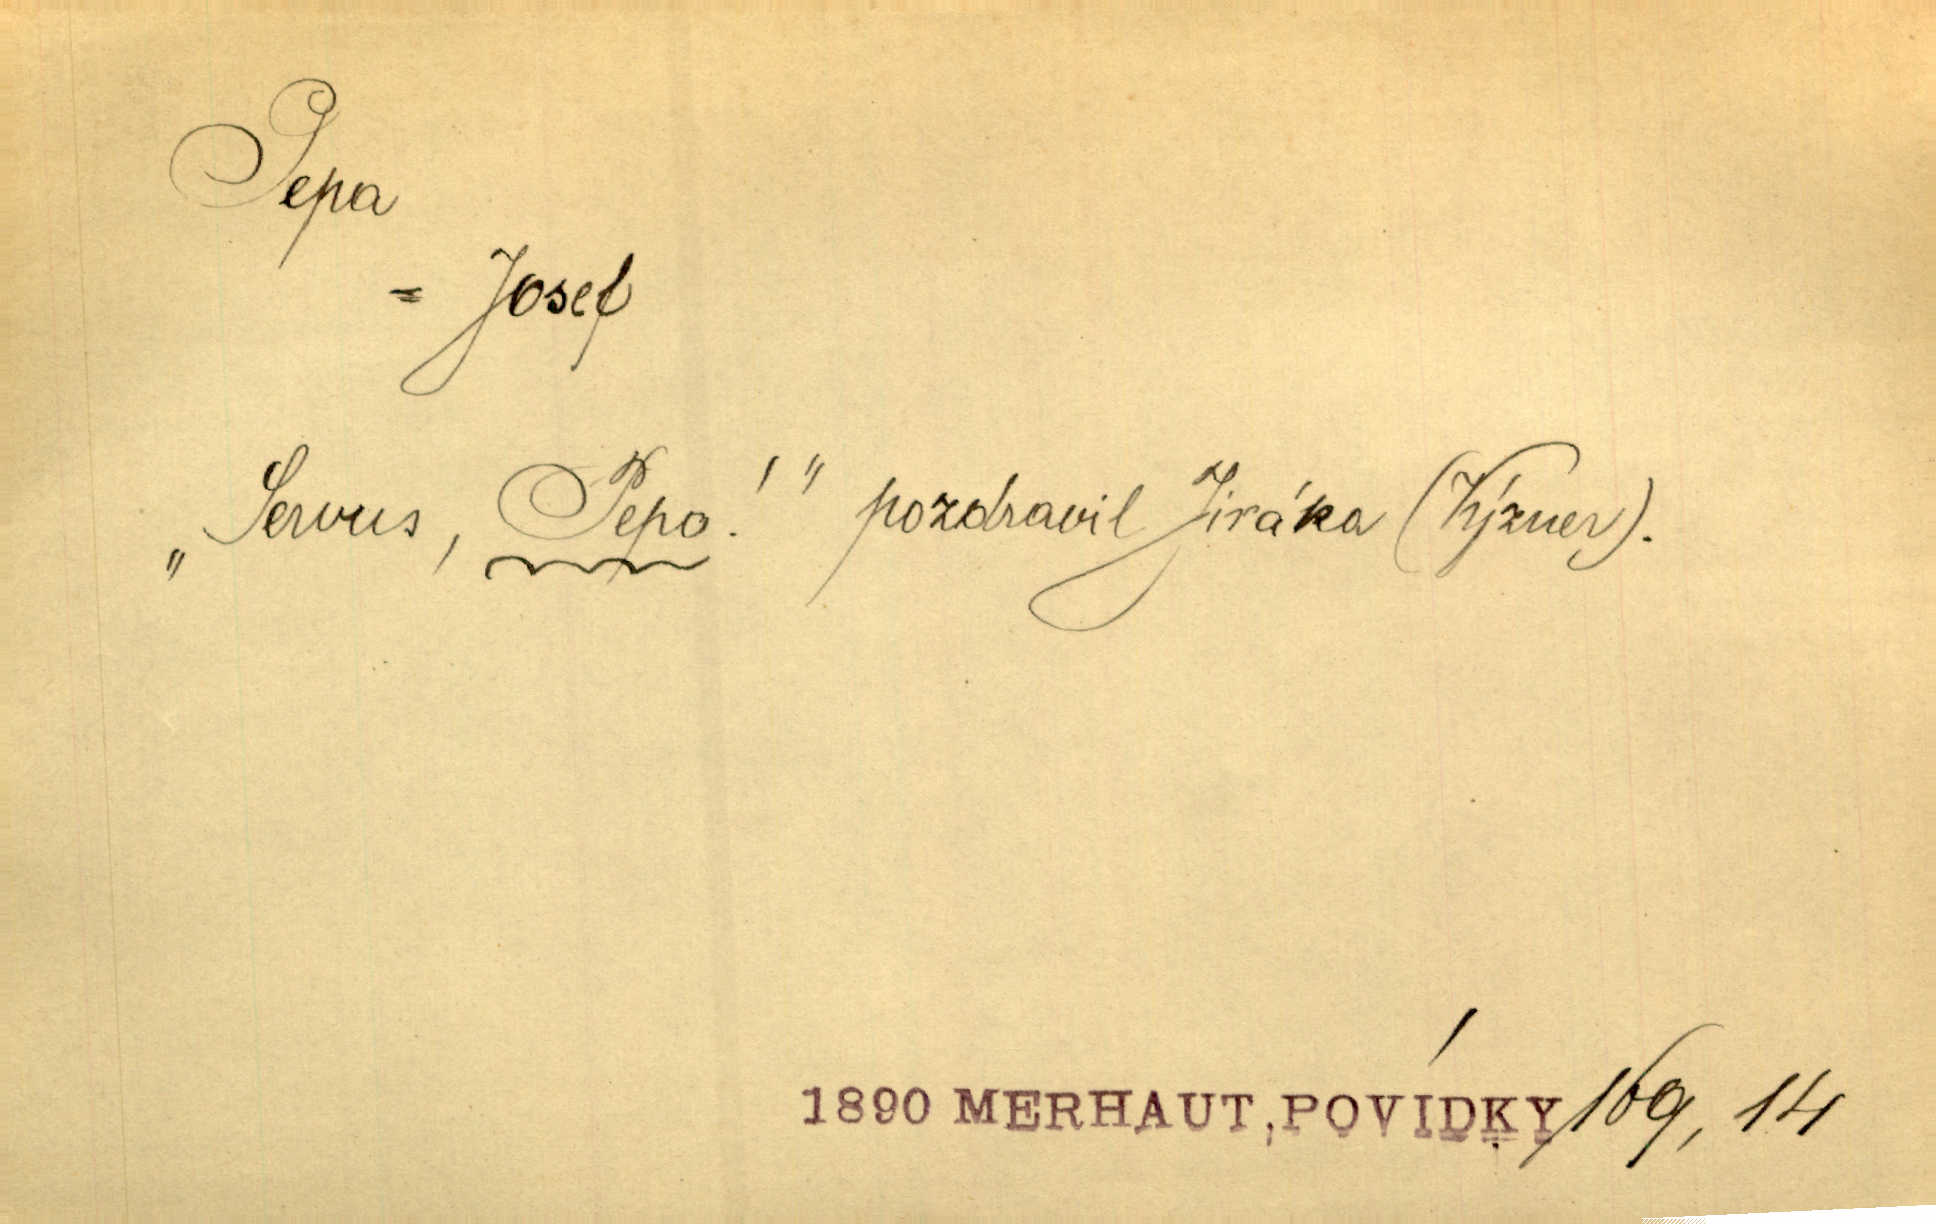 Pepa
= Josef
„Servus, Pepo!" pozdravil Jiráka (Význer).
1890 MERHAUT, POVÍDKY 169, 14